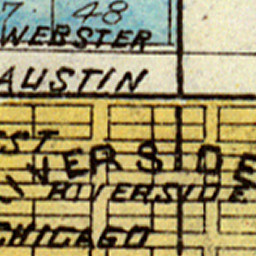 7 48
WEBSTER
AUSTIN
ST
RIVERSIDE
RIVERSIDE
CHICAGO